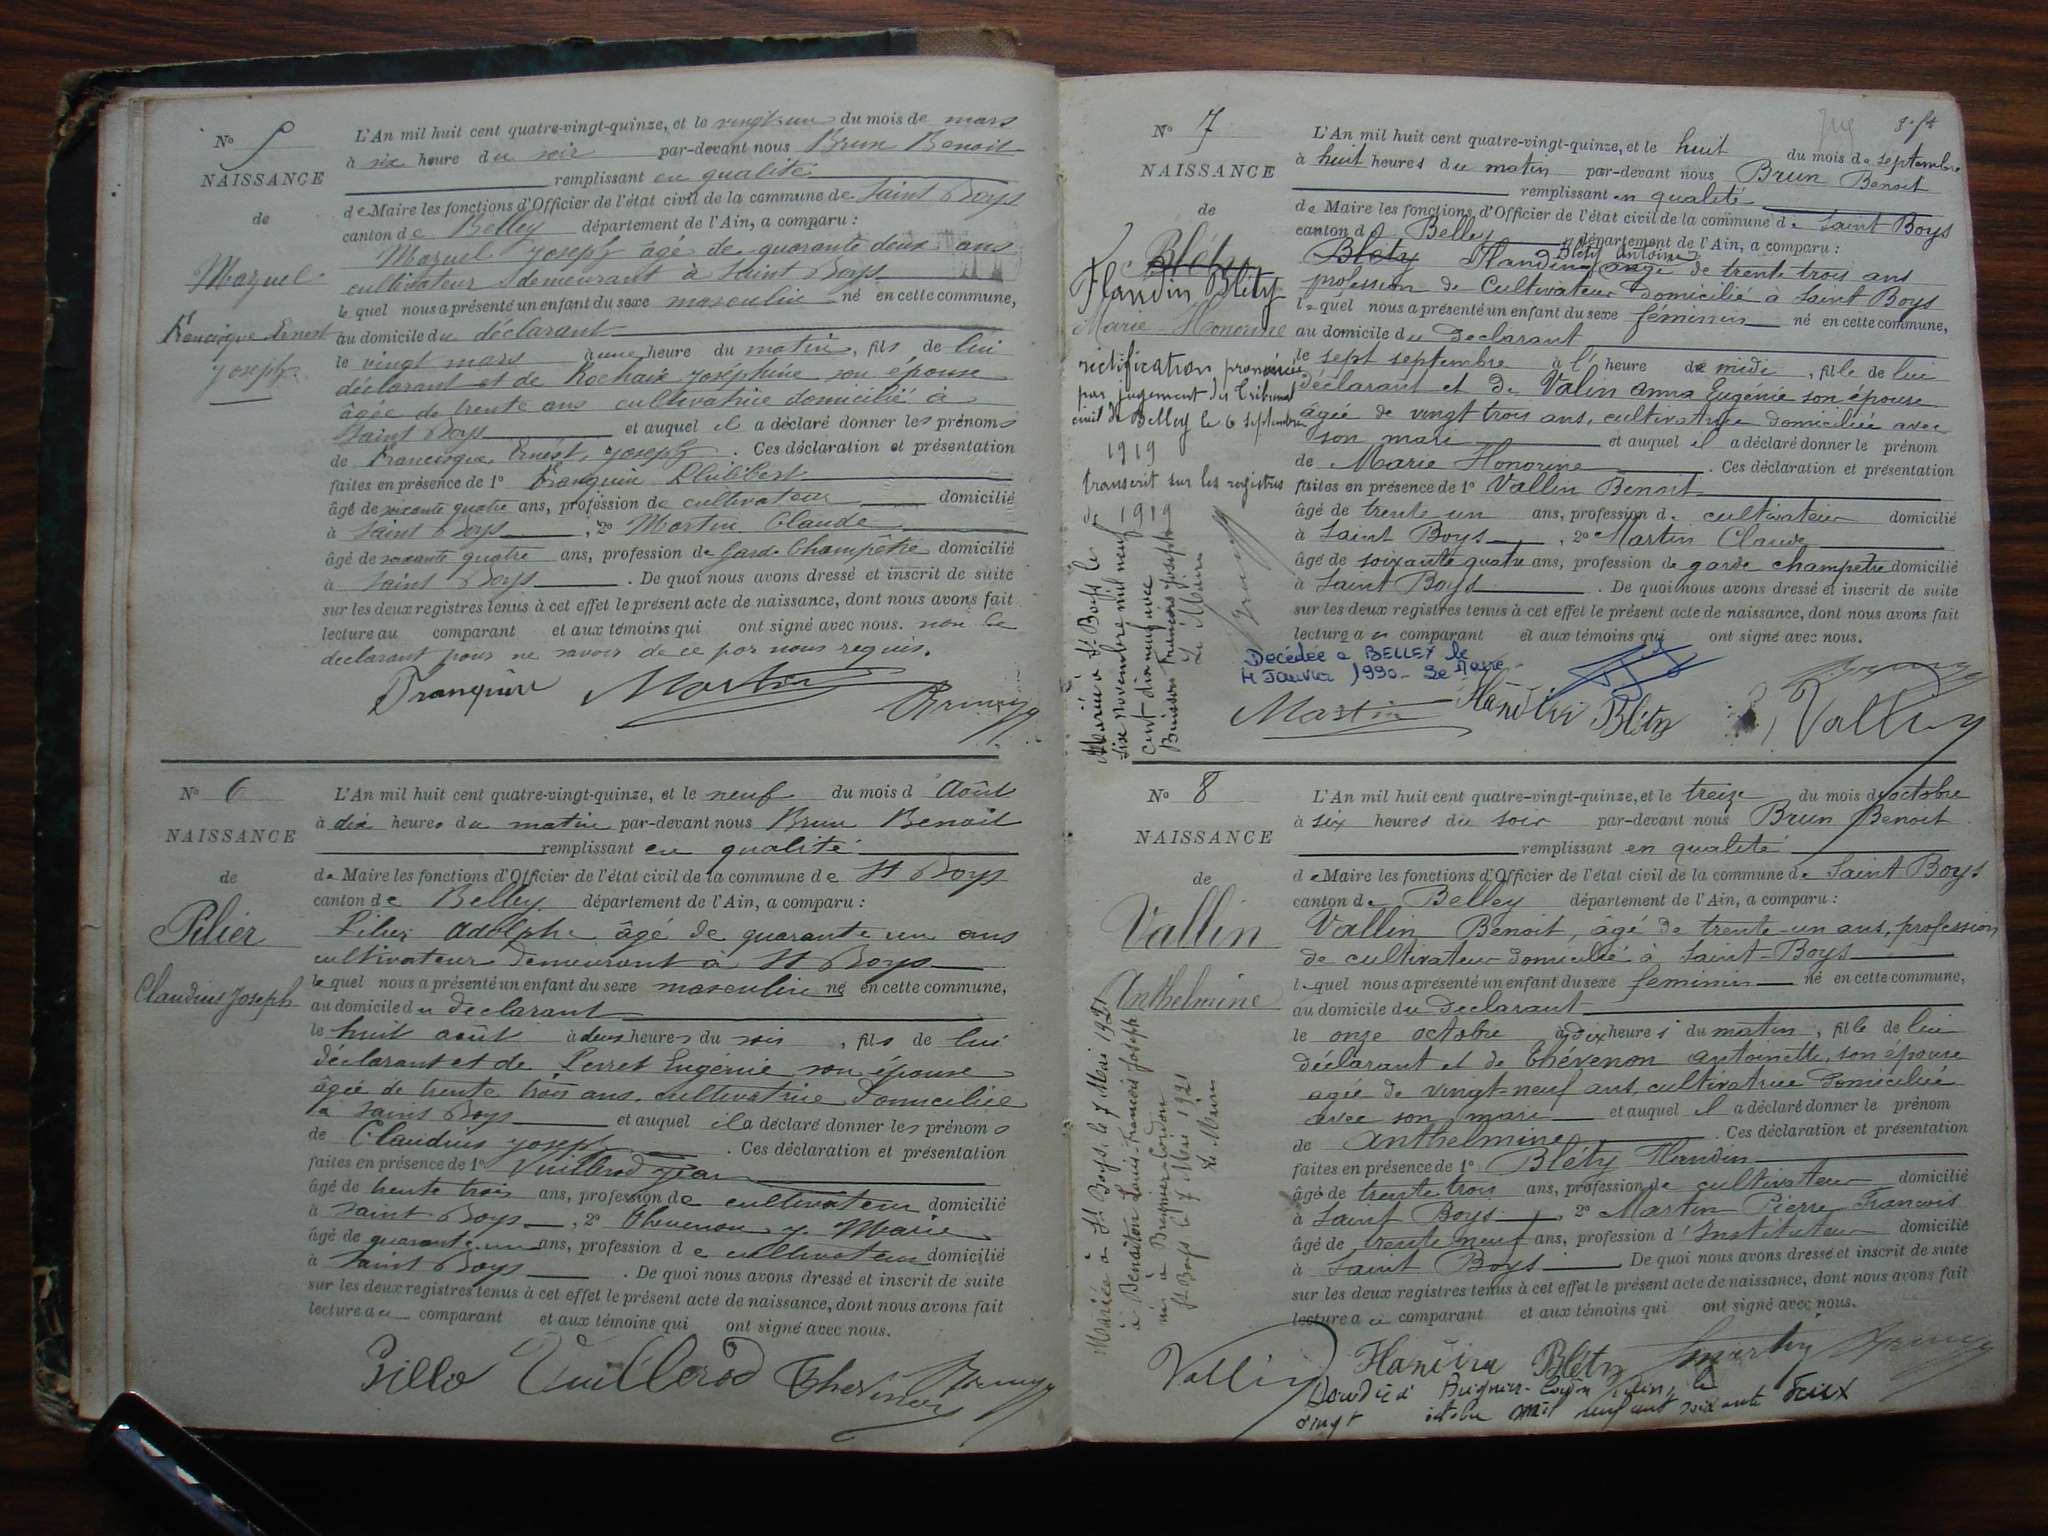 N° 5
NAISSANCE
de
Mazuel
Francisque Ernest
Joseph
L'An mil huit cent quatre-vingt-quinze, et le vingt-un du mois de mars
à six heure du soir par-devant nous Brun Benoit
remplissant en qualité
de Maire les fonctions d'Officier de l'état civil de la commune de Saint Boys
canton de Belley département de l'Ain, a comparu :
Mazuel Joseph âgé de quarante deux ans
cultivateur demeurant à Saint Boys
lequel nous a présenté un enfant du sexe masculin né en cette commune,
au domicile du déclarant
le vingt mars à une heure du matin, fils de lui
déclarant et de Rochaix Joséphine son épouse
âgée de trente ans cultivatrice domicilié à
Saint Boys et auquel il a déclaré donner les prénoms
de Francisque, Ernest, Joseph. Ces déclaration et présentation
faites en présence de 1° Franquin Philibert
âgé de soixante quatre ans, profession de cultivateur domicilié
à Saint Boys, 2° Martin Claude
âgé de soixante quatre ans, profession de Garde Champêtre domicilié
à Saint Boys. De quoi nous avons dressé et inscrit de suite
sur les deux registres tenus à cet effet le présent acte de naissance, dont nous avons fait
lecture au comparant et aux témoins qui ont signé avec nous. non le
declarant pour ne savoir de ce par nous requis.
Martin
N° 6
NAISSANCE
de
Pilier
Claudius Joseph
L'An mil huit cent quatre-vingt-quinze, et le neuf du mois d'Août
à dix heures du matin par-devant nous Brun Benoit
remplissant en qualité
de Maire les fonctions d'Officier de l'état civil de la commune de St Boys
canton de Belley département de l'Ain, a comparu :
Pilier Adolphe âgé de quarante un ans
cultivateur demeurant à St Boys
lequel nous a présenté un enfant du sexe masculin né en cette commune,
au domicile du declarant
le huit août à deux heures du soir, fils de lui
déclarant et de Perret Eugénie son épouse
âgée de trente trois ans cultivatrice domiciliée
à Saint Boys et auquel il a déclaré donner les prénoms
de Claudius Joseph. Ces déclaration et présentation
faites en présence de 1° Vuillerod Jean
âgé de trente trois ans, profession de cultivateur domicilié
à Saint Boys, 2° Thevenon J. Marie
âgé de quarante un ans, profession de cultivateur domicilié
à Saint Boys. De quoi nous avons dressé et inscrit de suite
sur les deux registres tenus à cet effet le présent acte de naissance, dont nous avons fait
lecture au comparant et aux témoins qui ont signé avec nous.
Vuillerod
N° 7
NAISSANCE
de
Bléty
Flandin Bléty
Marie Honorine
rectification prononcée
par jugement du Tribunal
civil de Belley le 6 septembre
1919
transcrit sur les registres
de 1919
Mariée à St Boys le
six novembre mil neuf
cent dix neuf avec
Buisson François Joseph
Le Maire
L'An mil huit cent quatre-vingt-quinze, et le huit du mois de septembre
à huit heures du matin par-devant nous Brun Benoit
remplissant en qualité
de Maire les fonctions d'Officier de l'état civil de la commune de Saint Boys
canton de Belley département de l'Ain, a comparu :
Bléty Flandin Bléty Antoine âgé de trente trois ans
profession de Cultivateur domicilié à Saint Boys
lequel nous a présenté un enfant du sexe féminin né en cette commune,
au domicile du Declarant
le sept septembre à l'heure de midi, fille de lui
déclarant et de Valin Anna Eugénie son épouse
âgée de vingt trois ans, cultivatrice domiciliée avec
son mari et auquel il a déclaré donner le prénom
de Marie Honorine. Ces déclaration et présentation
faites en présence de 1° Vallin Benoit
âgé de trente un ans, profession de cultivateur domicilié
à Saint Boys, 2° Martin Claude
âgé de soixante quatre ans, profession de garde champetre domicilié
à Saint Boys. De quoi nous avons dressé et inscrit de suite
sur les deux registres tenus à cet effet le présent acte de naissance, dont nous avons fait
lecture au comparant et aux témoins qui ont signé avec nous.
Décédée à BELLEY le
Janvier 1990 - Le Maire
Martin Flandin Bléty Vallin
N° 8
NAISSANCE
de
Vallin
Anthelmine
Mariée à St Boys le 7 Mai 1921
à Benaiton Louis François Joseph
né à Bregnier-Cordon
St Boys le 7 Mai 1921
Le Maire
L'An mil huit cent quatre-vingt-quinze, et le treize du mois d'octobre
à six heures du soir par-devant nous Brun Benoit
remplissant en qualité
de Maire les fonctions d'Officier de l'état civil de la commune de Saint Boys
canton de Belley département de l'Ain, a comparu :
Vallin Benoit, âgé de trente-un ans, profession
de cultivateur domicilié à Saint-Boys
lequel nous a présenté un enfant du sexe feminin né en cette commune,
au domicile du Declarant
le onze octobre à dix heures du matin, fille de lui
déclarant et de Thévenon Antoinette, son épouse
agée de vingt-neuf ans, cultivatrice domiciliée
avec son mari et auquel il a déclaré donner le prénom
de Anthelmine. Ces déclaration et présentation
faites en présence de 1° Bléty Flandin
âgé de trente trois ans, profession de cultivateur domicilié
à Saint Boys, 2° Martin Pierre François
âgé de trente neuf ans, profession d'Instituteur domicilié
à Saint Boys. De quoi nous avons dressé et inscrit de suite
sur les deux registres tenus à cet effet le présent acte de naissance, dont nous avons fait
lecture au comparant et aux témoins qui ont signé avec nous.
Vallin Flandin Bléty Martin
Brégnier-Cordon le
vingt octobre mil neuf cent soixante deux